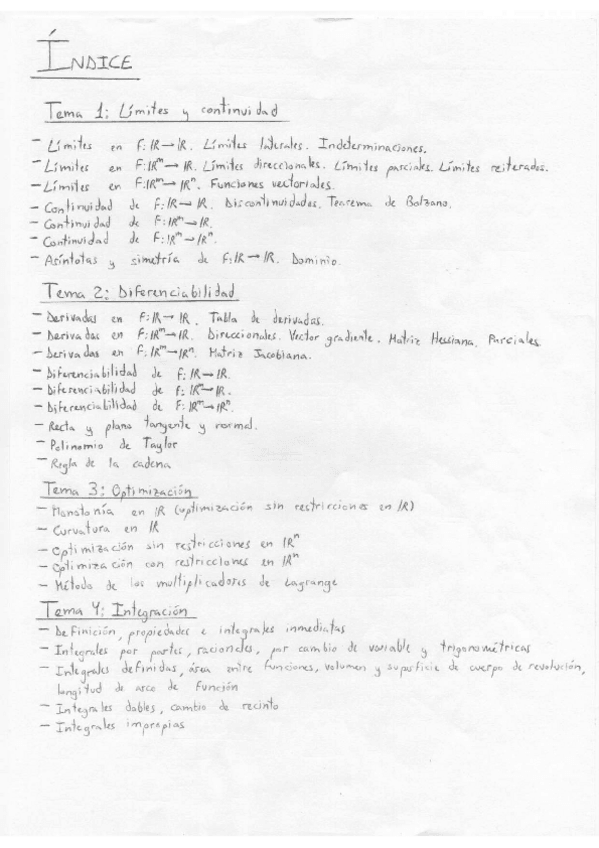 ÍNDICE
Tema 1: Límites y continuidad
- Límites en F: ℝ → ℝ. Límites laterales. Indeterminaciones.
- Límites en F: ℝᵐ → ℝ. Límites direccionales. Límites parciales. Límites reiterados.
- Límites en F: ℝᵐ → ℝⁿ. Funciones vectoriales.
- Continuidad de F: ℝ → ℝ. Discontinuidades. Teorema de Bolzano.
- Continuidad de F: ℝᵐ → ℝ.
- Continuidad de F: ℝᵐ → ℝⁿ.
- Asíntotas y simetría de F: ℝ → ℝ. Dominio.
Tema 2: Diferenciabilidad
- Derivadas en F: ℝ → ℝ. Tabla de derivadas.
- Derivadas en F: ℝᵐ → ℝ. Direccionales. Vector gradiente. Matriz Hessiana. Parciales
- Derivadas en F: ℝᵐ → ℝⁿ. Matriz Jacobiana.
- Diferenciabilidad de F: ℝ → ℝ.
- Diferenciabilidad de F: ℝᵐ → ℝ.
- Diferenciabilidad de F: ℝᵐ → ℝⁿ.
- Recta y plano tangente y normal.
- Polinomio de Taylor
- Regla de la cadena
Tema 3: Optimización
- Monotonía en ℝ (optimización sin restricciones en ℝ)
- Curvatura en ℝ
- Optimización sin restricciones en ℝⁿ
- Optimización con restricciones en ℝⁿ
- Método de los multiplicadores de Lagrange
Tema 4: Integración
- Definición, propiedades e integrales inmediatas
- Integrales por partes, racionales, por cambio de variable y trigonométricas
- Integrales definidas, área entre funciones, volumen y superficie de cuerpo de revolución,
longitud de arco de función
- Integrales dobles, cambio de recinto
- Integrales impropias